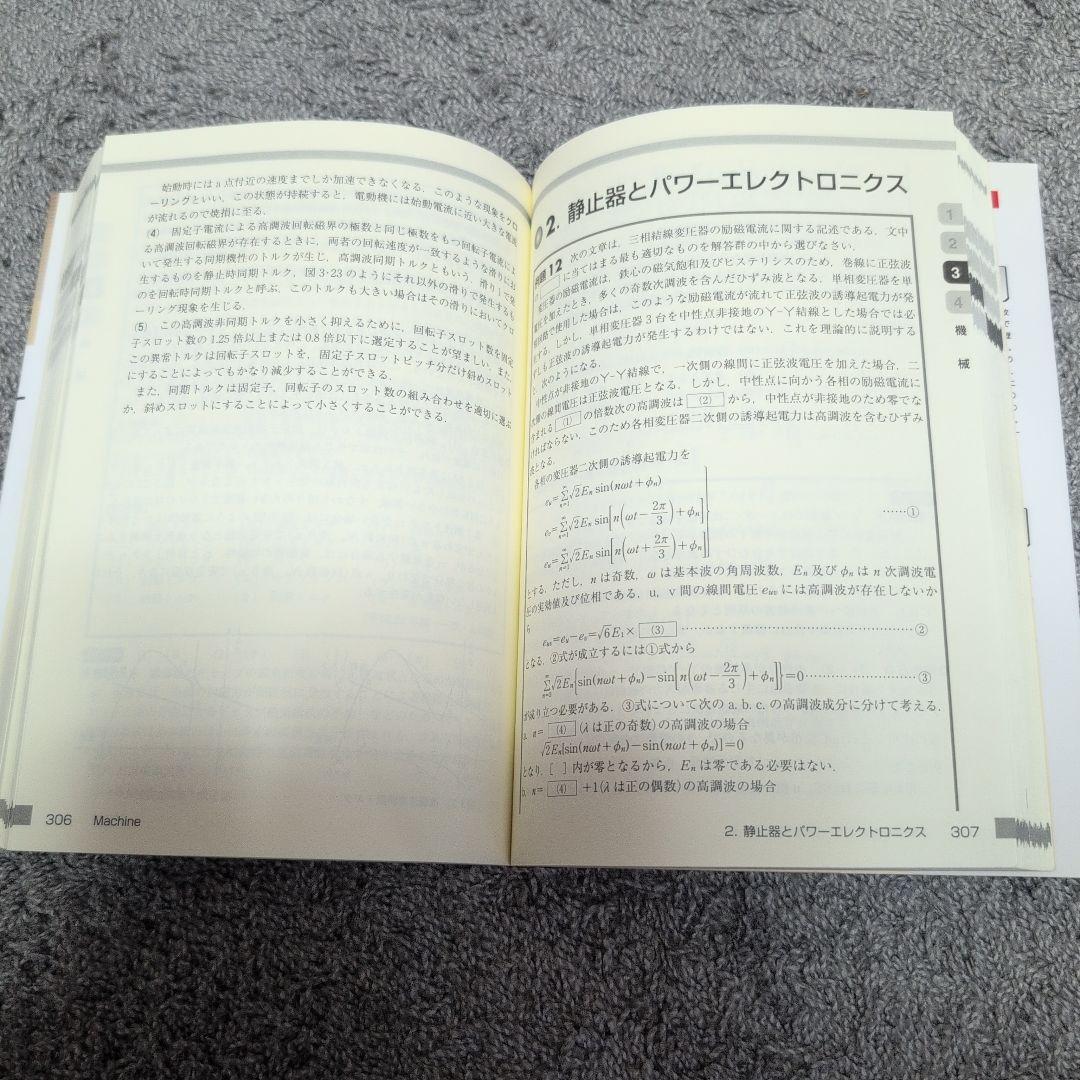 始動時にはa点付近の速度までしか加速できなくなる．このような現象をクロ
ーリングといい，この状態が持続すると，電動機には始動電流に近い大きな電流
が流れるので焼損に至る．
(4) 固定子電流による高調波回転磁界の極数と同じ極数をもつ回転子電流によ
る高調波回転磁界が存在するときに，両者の回転速度が一致するような滑りにお
いて発生する同期機性のトルクが生じ，高調波同期トルクという．滑り1で発
生するものを静止時同期トルク，図3・23のようにそれ以外の滑りで発生するも
のを回転時同期トルクと呼ぶ．このトルクも大きい場合はその滑りにおいてクロ
ーリング現象を生じる．
(5) この高調波非同期トルクを小さく抑えるために，回転子スロット数を固定
子スロット数の1.25倍以上または0.8倍以下に選定することが望ましい．また，
この異常トルクは回転子スロットを，固定子スロットピッチ分だけ斜めスロット
にすることによってもかなり減少することができる．
また，同期トルクは固定子，回転子のスロット数の組み合わせを適切に選ぶ
か，斜めスロットにすることによって小さくすることができる．
306 Machine
2. 静止器とパワーエレクトロニクス
題12 次の文章は，三相結線変圧器の励磁電流に関する記述である．文中
に当てはまる最も適切なものを解答群の中から選びなさい．
変圧器の励磁電流は，鉄心の磁気飽和及びヒステリシスのため，巻線に正弦波
電圧を加えたとき，多くの奇数次調波を含んだひずみ波となる．単相変圧器を単
相回路で使用した場合は，このような励磁電流が流れて正弦波の誘導起電力が発
生する．しかし，単相変圧器3台を中性点非接地のY-Y結線とした場合では必
ずしも正弦波の誘導起電力が発生するわけではない．これを理論的に説明する
と，次のようになる．
中性点が非接地のY-Y結線で，一次側の線間に正弦波電圧を加えた場合，二
次側の線間電圧は正弦波電圧となる．しかし，中性点に向かう各相の励磁電流に
含まれる (1) の倍数次の高調波は (2) から，中性点が非接地のため零でな
ければならない．このため各相変圧器二次側の誘導起電力は高調波を含むひずみ
波となる．
各相の変圧器二次側の誘導起電力を
e_u=Σ_{n=1}^{∞}√2E_n sin(nωt+φ_n)
e_v=Σ_{n=1}^{∞}√2E_n sin[n(ωt−2π/3)+φ_n]
e_w=Σ_{n=1}^{∞}√2E_n sin[n(ωt+2π/3)+φ_n]
……①
とする．ただし，nは奇数，ωは基本波の角周波数，E_n及びφ_nはn次調波電
圧の実効値及び位相である．u，v間の線間電圧e_uvには高調波が存在しないか
ら
e_uv=e_u−e_v=√6E_1× (3) ……②
となる．②式が成立するには①式から
Σ_{n=3}^{∞}√2E_n{sin(nωt+φ_n)−sin[n(ωt−2π/3)+φ_n]}=0……③
が成り立つ必要がある．③式について次のa．b．c．の高調波成分に分けて考える．
a．n= (4) (λは正の奇数)の高調波の場合
√2E_n[sin(nωt+φ_n)−sin(nωt+φ_n)]=0
となり，[ ]内が零となるから，E_nは零である必要はない．
b．n= (4) +1(λは正の偶数)の高調波の場合
2. 静止器とパワーエレクトロニクス 307
1
2
3
4
機
械